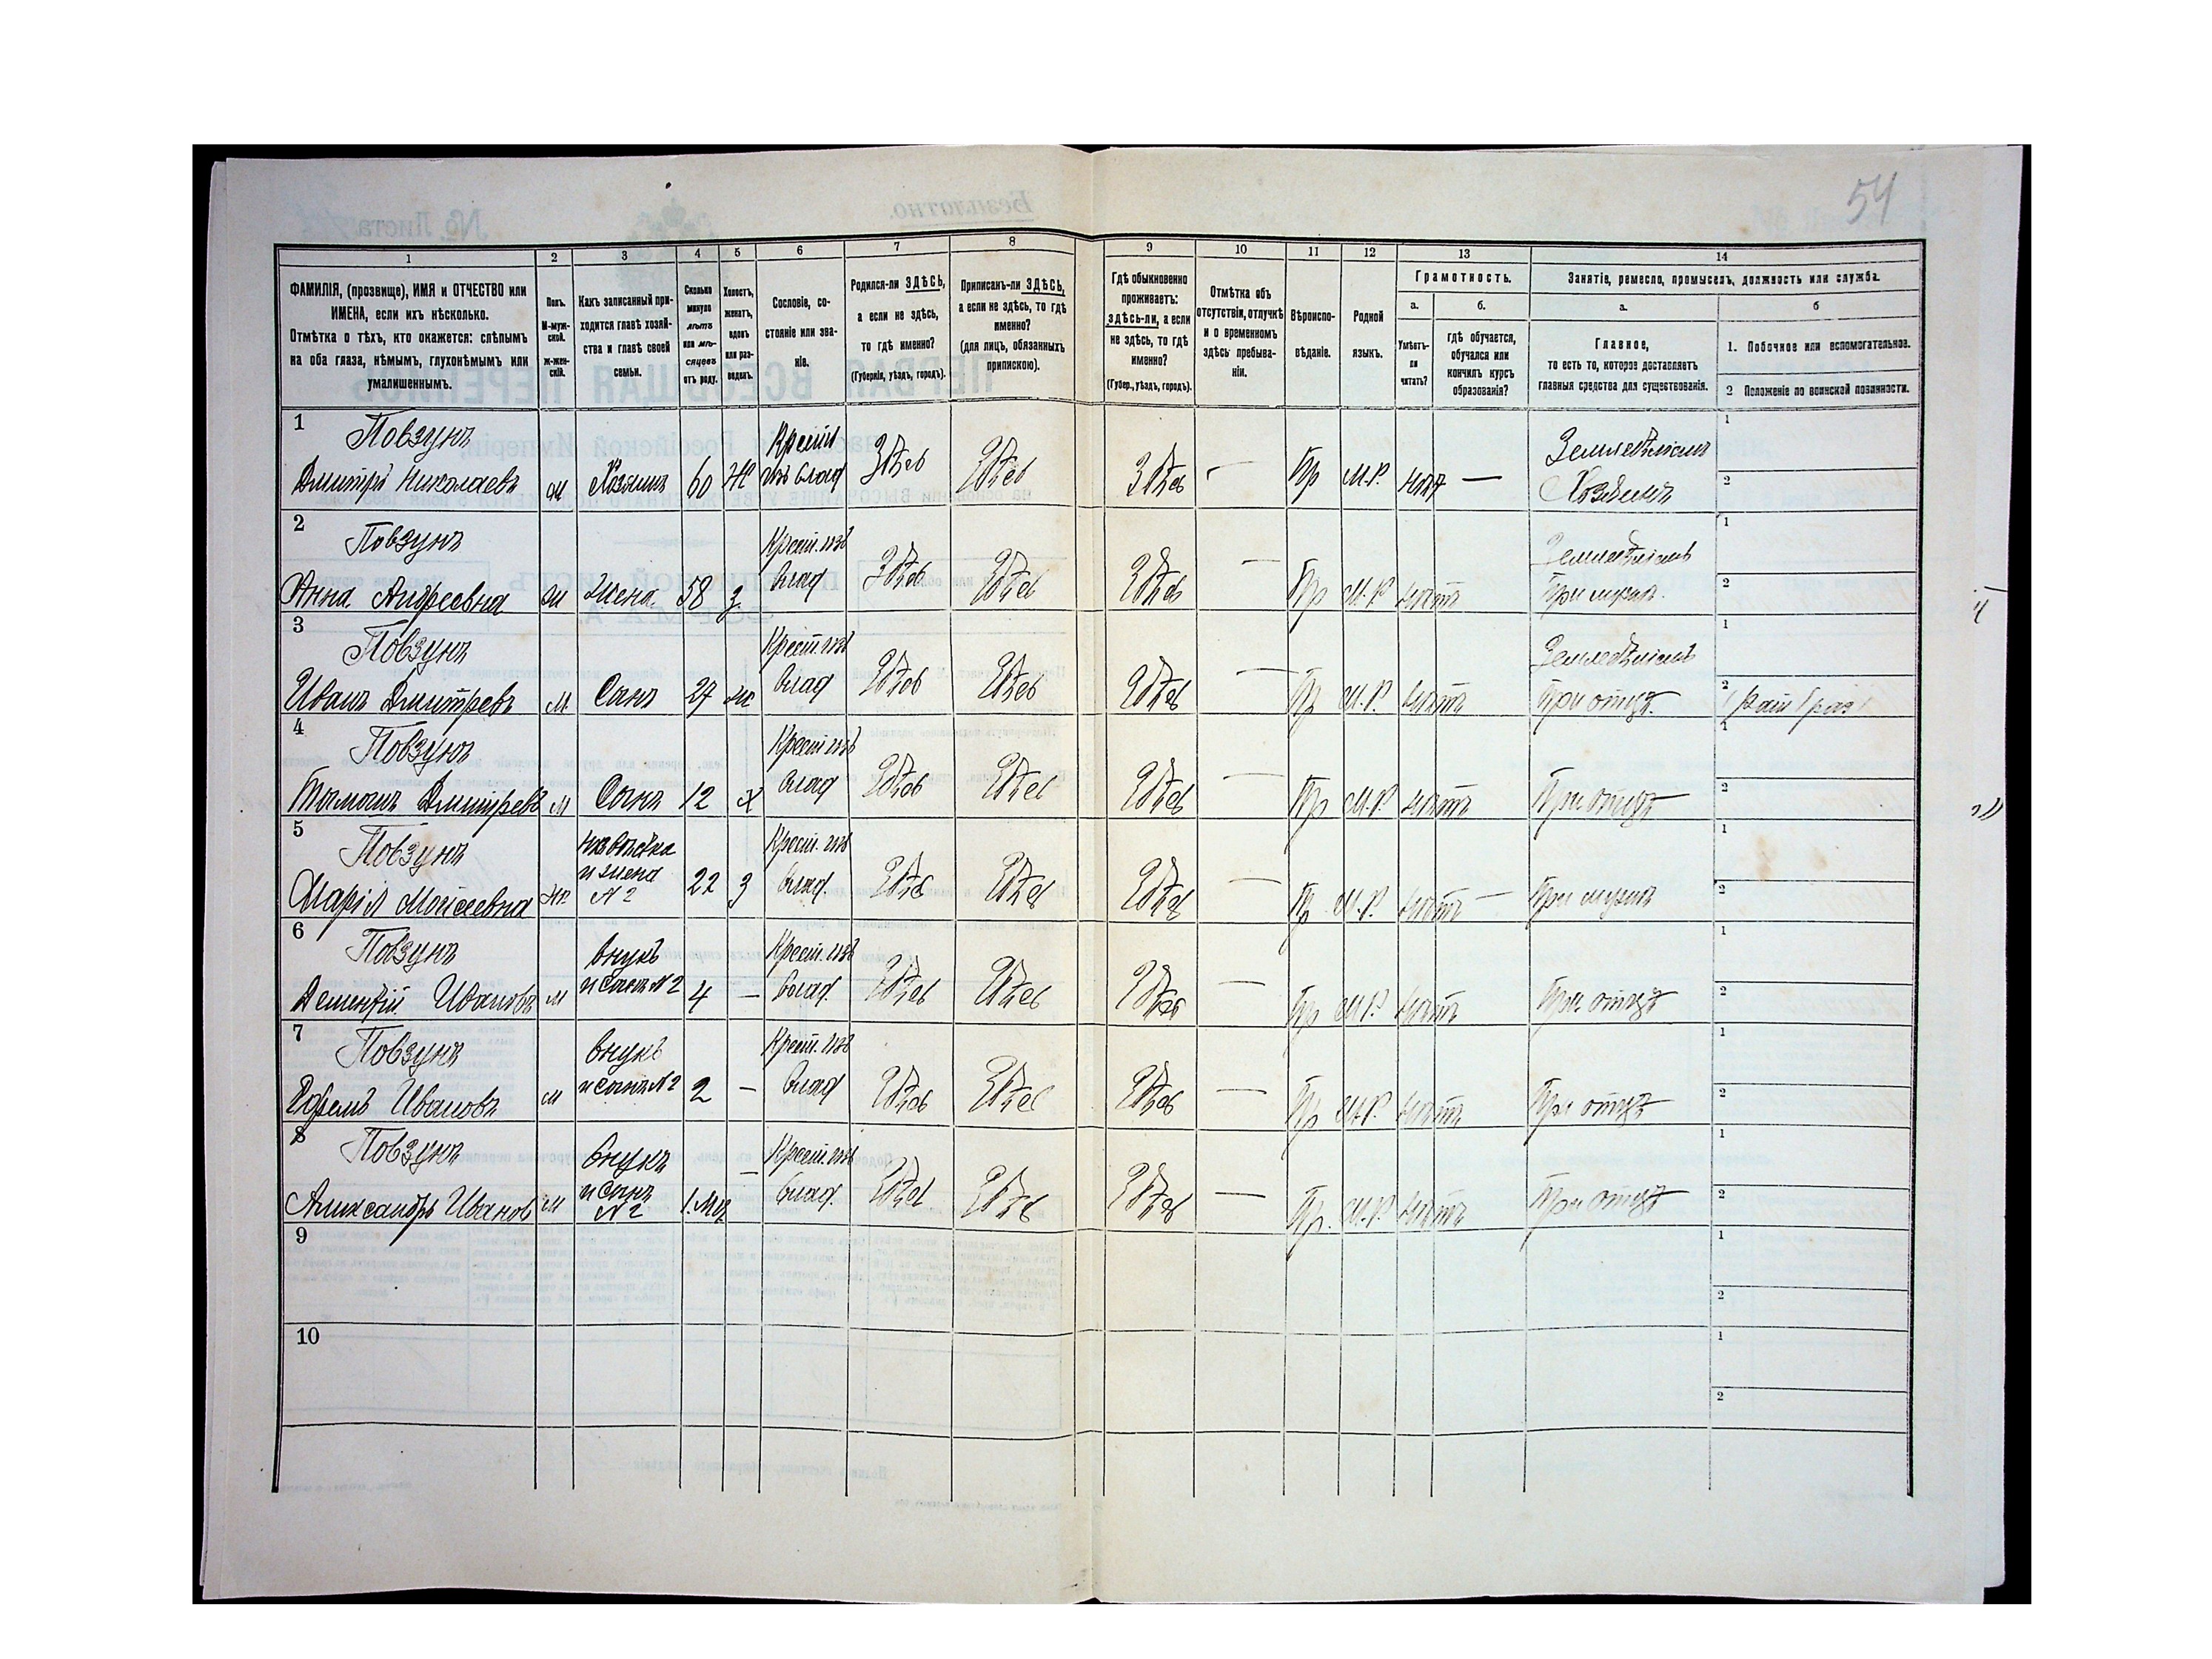 54
1
2
3
4
5
6
7
8
9
10
11
12
13
14
ФАМИЛІЯ, (прозвище), ИМЯ и ОТЧЕСТВО или
ИМЕНА, если ихъ нѣсколько.
Отмѣтка о тѣхъ, кто окажется: слѣпымъ
на оба глаза, нѣмымъ, глухонѣмымъ или
умалишеннымъ.
Полъ.
М-муж-
ской.
Ж-жен-
скій.
Какъ записанный при-
ходится главѣ хозяй-
ства и главѣ своей
семьи.
Сколько
минуло
лѣтъ
или мѣ-
сяцевъ
отъ роду.
Холостъ,
женатъ,
вдовъ
или раз-
веденъ.
Сословіе, со-
стояніе или зва-
ніе.
Родился-ли ЗДѢСЬ,
а если не здѣсь,
то гдѣ именно?
(Губернія, уѣздъ, городъ).
Приписанъ-ли ЗДѢСЬ,
а если не здѣсь, то гдѣ
именно?
(для лицъ, обязанныхъ
припискою).
Гдѣ обыкновенно
проживаетъ:
здѣсь-ли, а если
не здѣсь, то гдѣ
именно?
(Губер., уѣздъ, городъ).
Отмѣтка объ
отсутствіи, отлучкѣ
и о временномъ
здѣсь пребыва-
ніи.
Вѣроиспо-
вѣданіе.
Родной
языкъ.
Грамотность.
а.
б.
Умѣетъ-
ли
читать?
гдѣ обучается,
обучался или
кончилъ курсъ
образованія?
Занятіе, ремесло, промыселъ, должность или служба.
а.
б
Главное,
то есть то, которое доставляетъ
главныя средства для существованія.
1. Побочное или вспомогательное.
2 Положеніе по воинской повинности.
1
Повзунъ
Дмитрій Николаевъ м Хозяинъ 60 Ж
изъ влад Здѣсь Здѣсь Здѣсь — Пр М.Р. нѣт —
Хозяинъ
1
2
2
Повзунъ Крест. изъ
Анна Андреевна жена 58 з влад Здѣсь Здѣсь Здѣсь — Пр М.Р нѣтъ
При мужѣ.
1
2
3
Повзунъ Крест. изъ
Иванъ Дмитревъ м Сынъ 27 ж влад Здѣсь Здѣсь Здѣсь — Пр М.Р. нѣтъ При отцѣ
1
2
4
Повзунъ Крест изъ
Дмитревъ м Сынъ 12 х влад Здѣсь Здѣсь Здѣсь — Пр М.Р. нѣтъ При отцѣ
1
2
5
Повзунъ Крест. изъ
и жена
№ 2
Марія Моисеевна ж 22 З влад. Здѣсь Здѣсь Здѣсь — Пр М.Р. нѣтъ — При мужѣ
1
2
6
Повзунъ внукъ Крест. изъ
Дементій Ивановъ м и сынъ № 2 4 — влад. Здѣсь Здѣсь Здѣсь — Пр М.Р. нѣтъ При отцѣ
1
2
7
Повзунъ внукъ Крест. изъ
Ефремъ Ивановъ м и сынъ № 2 2 — влад Здѣсь Здѣсь Здѣсь — Пр М.Р. нѣтъ При отцѣ
1
2
8
Повзунъ внукъ — Крест. изъ
и сынъ
№ 2
Александръ Иванов м влад. Здѣсь Здѣсь Здѣсь — Пр. М.Р. нѣтъ При отцѣ
1
2
9
1
2
10
1
2